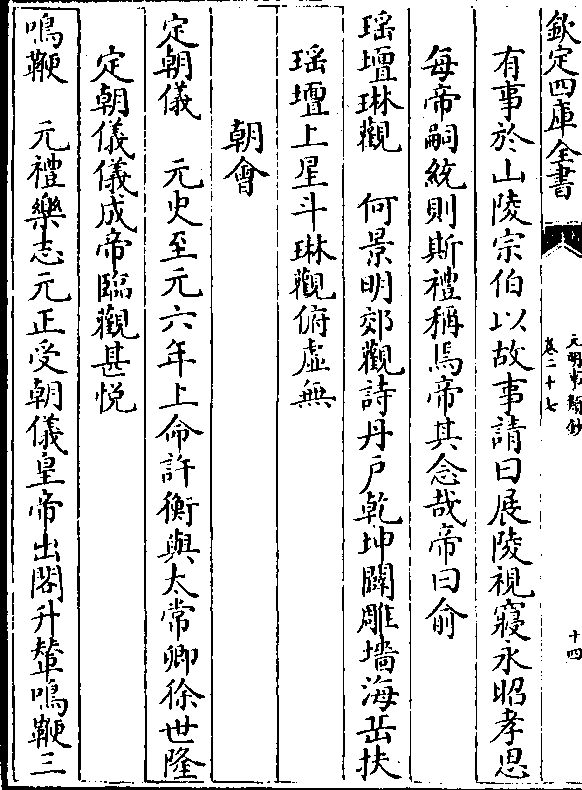 欽定四庫全書
元明事類鈔
卷二十七
十四
有事於山陵宗伯以故事請曰展陵視寢永昭孝思
每帝嗣統則斯禮稱焉帝其念哉帝曰俞
瑶壇琳觀　何景明郊觀詩丹戶乾坤闢雕墻海岳扶
瑶壇上星斗琳觀俯虛無
朝會
定朝儀　元史至元六年上命許衡與太常卿徐世隆
定朝儀儀成帝臨觀甚悅
鳴鞭　元禮樂志元正受朝儀皇帝出閣升輦鳴鞭三